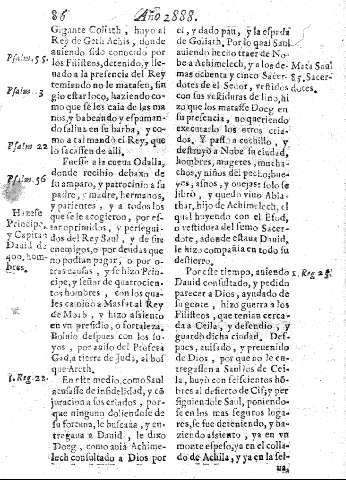 86 Año 2888.
Gigante Goliath, huyò al
Rey de Geth Achis, donde
auiendo sido conocido por
Psalm. 55.
los Filisteos, detenido, y lle-
uado a la presencia del Rey
temiendo no le matasen, fin
Psalm. 3
gio estar loco, haziendo co-
mo que se les caia de las ma
nos, y babeando y espuman-
do salina en su barba, y co-
Psalm 22
mo a tal mandò el Rey, que
lo sacassen de alli,
Fuesse a la cueua Odalla,
donde recibio debaxo de
Psalm. 56
su amparo, y patrocinio a su
padre, madre, hermanos,
y parientes, y a todos los
Hazese
que se le acogieron, por es-
Principe,
tar oprimidos, y persegui-
y Capitã
dos del Rey Saul, y de sus
Dauid de
enemigos, o por deudas que
400. hom-
no podian pagar, o por o-
bres.
tras causas, y se hizo Princi-
pe, y señor de quatrocien
tos hombres, con los qua-
les caminò a Masfe al Rey
de Moab, y hizo assiento
en vn presidio, o fortaleza.
Boluio despues con los su-
yos, por auiso del Profeta
Gad, a tierra de Judà, al bos
que Areth.
1. Reg. 22.
En este medio, como Saul
acusasse de infidelidad, y cõ
juracion a sus criados, por-
que ninguno doliendose de
su fortuna, le buscaua, y en-
tregaua a Dauid, le dixo
Doeg, como auia Achime-
lech consultado a Dios por
el, y dado pan, y la espada
de Goliath, Por lo qual Saul
auiendo hecho traer de No-
be a Achimelech, y a los de-
Mata Saul
mas ochenta y cinco Sacer-
85. Sacer-
dotes del Señor, vestidos
dotes.
con sus vestiduras de lino, hi
zo que los matasse Doeg en
su presencia, no queriendo
executarlo los otros cria-
dos. Y passò a cuchillo, y
destruyò a Nobe su ciudad,
hombres, mugeres, mucha-
chos, y niños del pecho, bue-
yes, asnos, y ouejas: solo se
librò, y quedò viuo Abia-
thar, hijo de Achimelech, el
qual huyendo con el Efod,
o vestidura del sumo Sacer-
dote, donde estaua Dauid,
le hizo compañia en todo su
destierro.
Por este tiempo, auiendo
1. Reg 23.
Dauid consultado, y pedido
parecer a Dios, ayudado de
su gente, hizo guerra a los
Filisteos, que tenian cerca-
da a Ceila, y defendio, y
guardò dicha ciudad. Des-
pues, auisado, y preuenido
de Dios, por que no le en-
tregassen a Saul los de Cei-
la, huyò con seiscientos hõ-
bres al desierto de Cif, y per
siguiendole Saul, poniendo-
se en los mas seguros luga-
res, se fue deteniendo, y ha-
ziendo assiento, ya en vn
monte espeso, ya en el colla-
do de Achila, y ya en la sel-
ua,